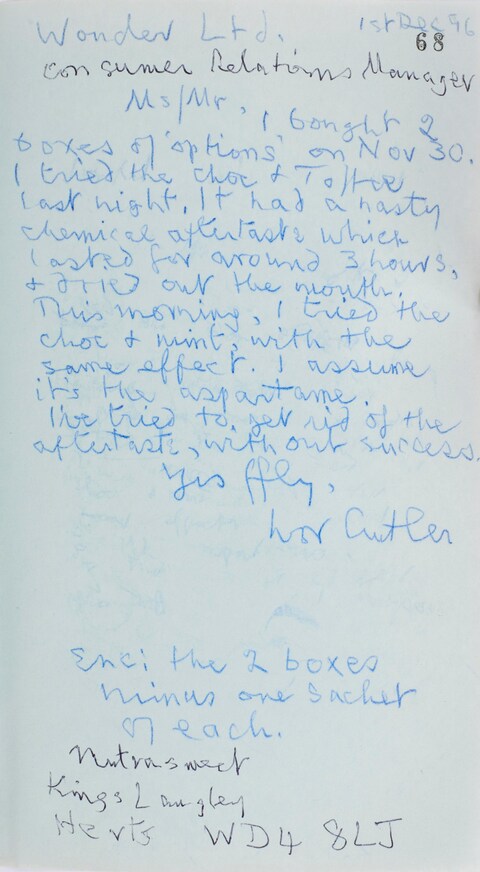 1st Dec 96
Wonder Ltd.
68
Consumer Relations Manager
Ms/Mr, I bought 2
boxes of 'options' on Nov 30.
I tried the choc & Toffee
last night. It had a nasty
chemical aftertaste which
lasted for around 3 hours,
& dried out the mouth.
This morning, I tried the
choc & mint, with the
same effect. I assume
it's the aspartame.
I've tried to get rid of the
aftertaste, without success.
Yrs ffly,
Ivor Cutler
Enc: the 2 boxes
minus one sachet
of each.
Nutrasweet
Kings Langley
Herts WD4 8LJ